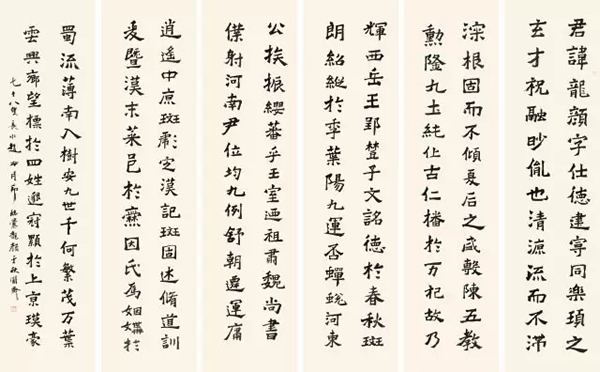 君諱龍顏字仕德建寧同樂頊之
玄才祝融眇胤也清源流而不滯
深根固而不傾夏后之盛敷陳五教
勳隆九土純化古仁播於万祀故乃
輝西岳王郢楚子文詺德於春秋斑
朗紹縱於季葉陽九運否蟬蛻河東
公族振纓蕃乎王室迺祖肅魏尚書
僕射河南尹位均九例舒朝遷運庸
逍遙中原斑彪定漢記斑固述脩道訓
爰暨漢末菜邑於爨因氏焉姻媾於
蜀流薄南入樹安九世千柯繁茂万葉
雲興鄉望標於四姓邈冠顯於上京瑛豪
七十八叟長水趙冷月節臨爨龍顏于缺圓齋